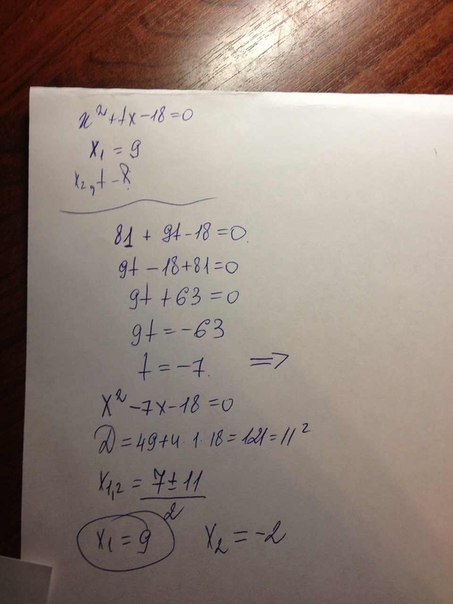 x² + tx - 18 = 0
x₁ = 9
x₂, t - ?
81 + 9t - 18 = 0.
9t - 18 + 81 = 0
9t + 63 = 0
9t = -63
t = -7. =>
x² - 7x - 18 = 0
D = 49 + 4 · 1 · 18 = 121 = 11²
x₁,₂ = (7 ± 11) / 2
x₁ = 9 x₂ = -2